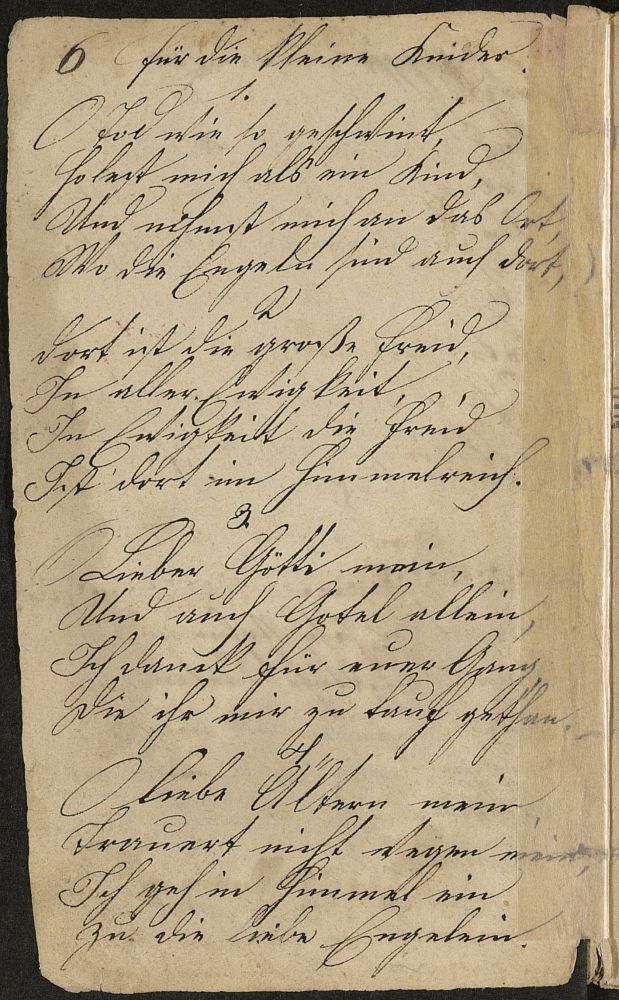 6 für die kleine Kinder.
1
O Tod wie so geschwint,
holest mich als ein Kind,
Und nihmst mich an das Ort,
Wo die Engeln sind auch dort,
2
dort ist die große Freid,
In aller Ewigkeit,
In Ewigkeit die Freid
Ist dort im Himmelreich.
3.
O Lieber Götti mein,
Und auch Gotel allein,
Ich danck für euer Gang
Die ihr mir zu tauf gethan.
4
O liebe Ältern mein
Trauert nicht wegen mein,
Ich geh in Himmel ein
zu die liebe Engelein.